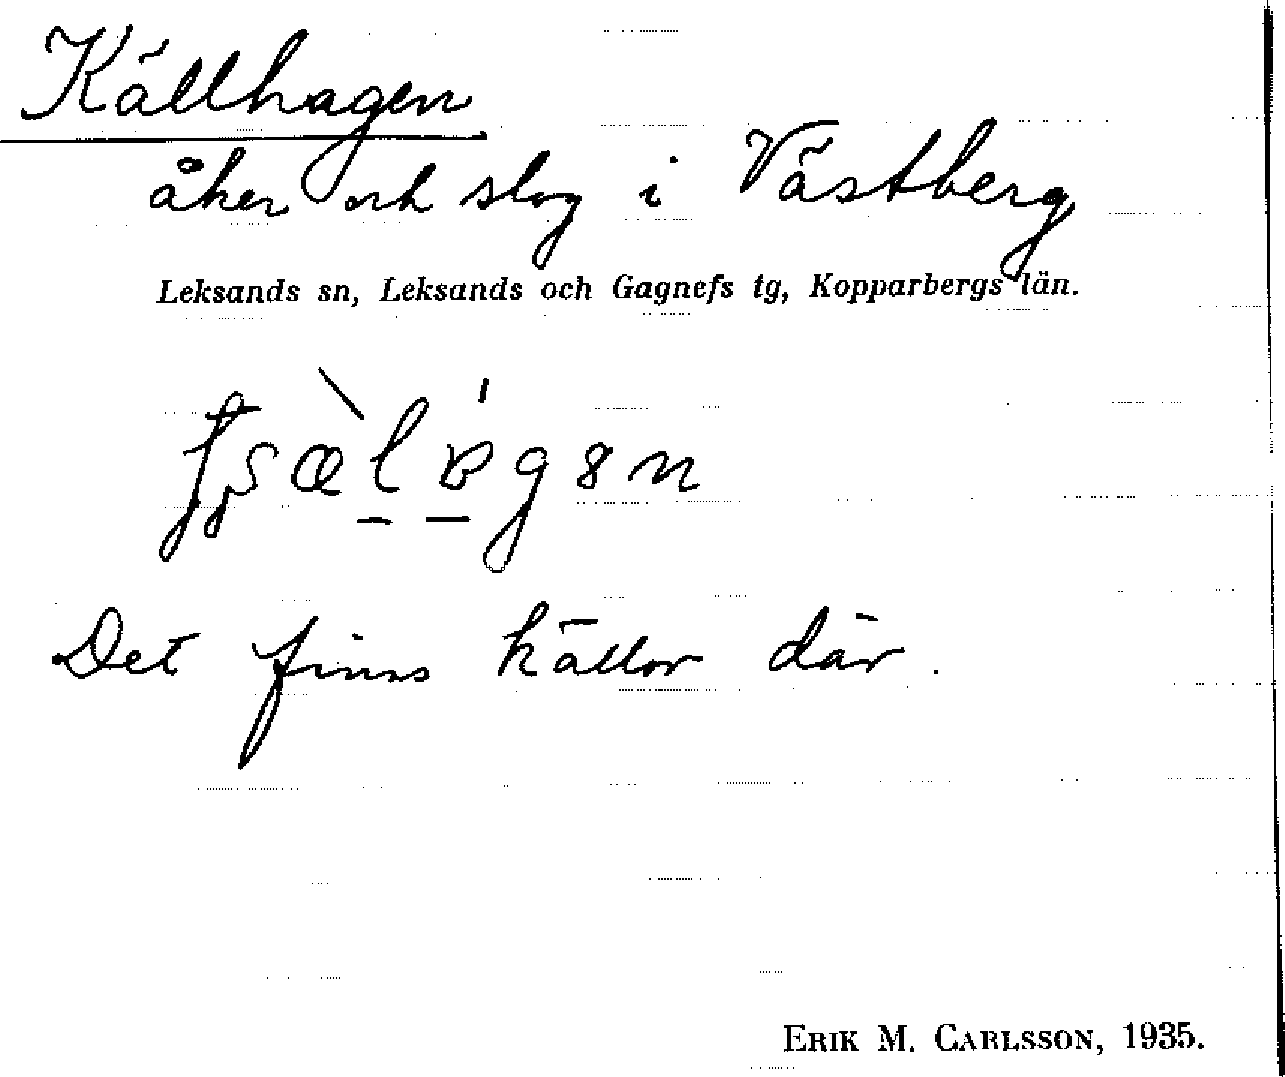 Källhagen
åker och slog i Västberg
Leksands sn, Leksands och Gagnefs tg, Kopparbergs län.
Det finns källor där.
ERIK M. CARLSSON, 1935.